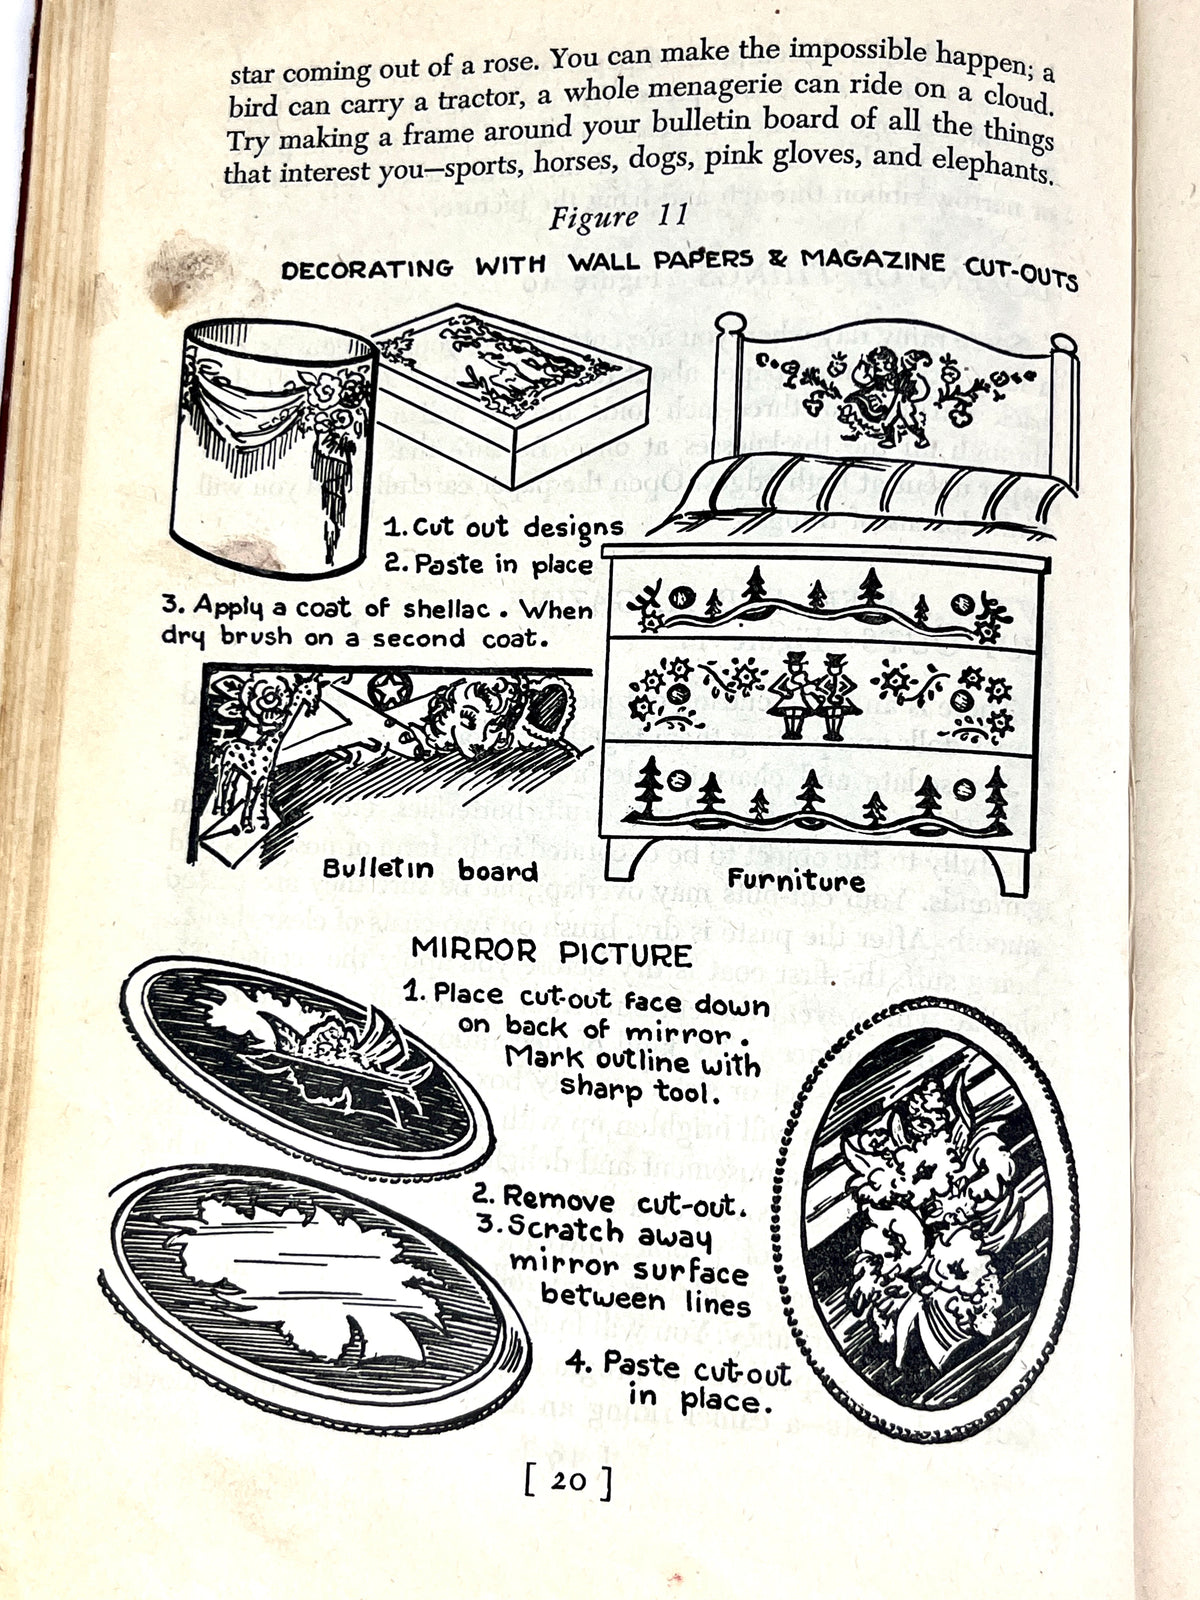 star coming out of a rose. You can make the impossible happen; a
bird can carry a tractor, a whole menagerie can ride on a cloud.
Try making a frame around your bulletin board of all the things
that interest you—sports, horses, dogs, pink gloves, and elephants.
Figure 11
DECORATING WITH WALL PAPERS & MAGAZINE CUT-OUTS
1. Cut out designs
2. Paste in place
3. Apply a coat of shellac. When
dry brush on a second coat.
Bulletin board
Furniture
MIRROR PICTURE
1. Place cut-out face down
on back of mirror.
Mark outline with
sharp tool.
2. Remove cut-out.
3. Scratch away
mirror surface
between lines
4. Paste cut-out
in place.
[ 20 ]